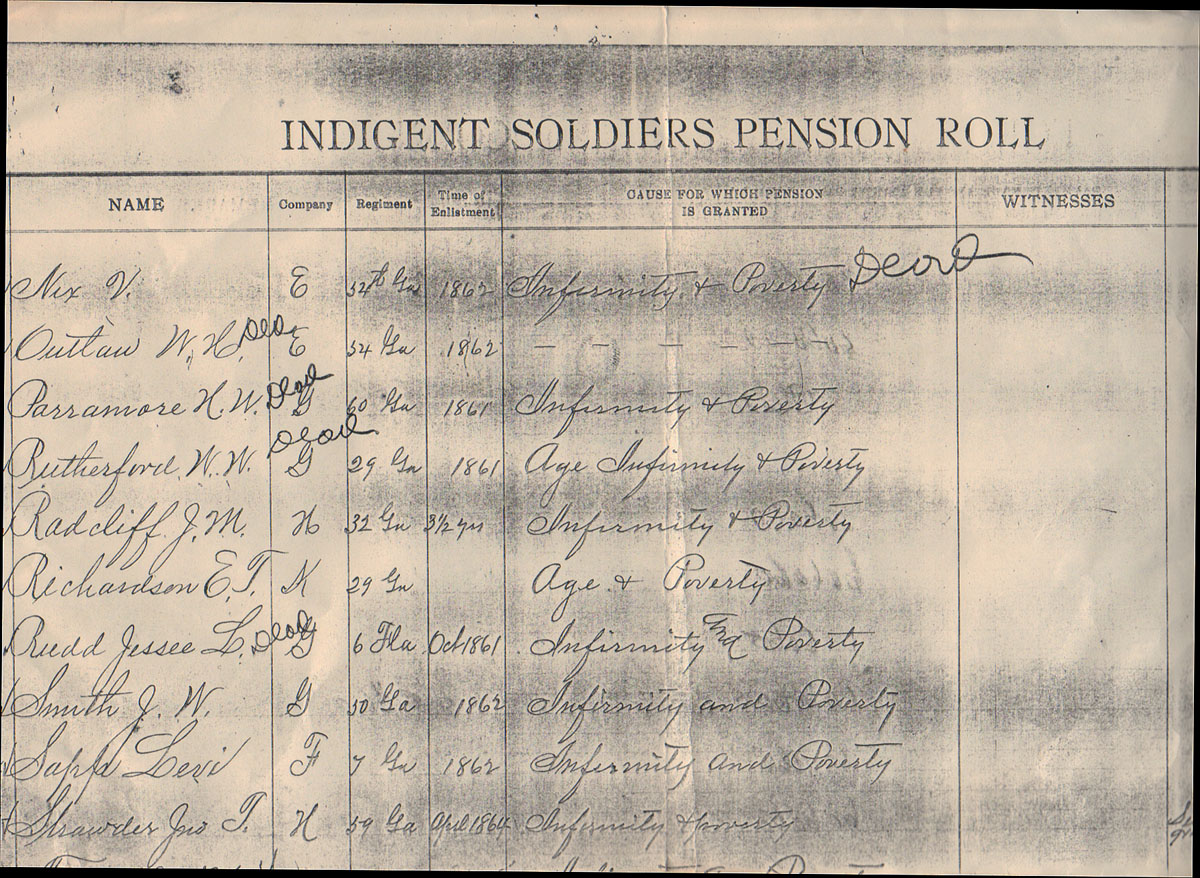 INDIGENT SOLDIERS PENSION ROLL
NAME Company Regiment Time of Enlistment CAUSE FOR WHICH PENSION IS GRANTED WITNESSES
Nix V. E 54th Ga 1862 Infirmity & Poverty Dead
Outlaw W. H. Dead E 54 Ga 1862 – – – – – –
Parramore H. W. Dead G 60 Ga 1861 Infirmity & Poverty
Rutherford W. W. Dead G 29 Ga 1861 Age Infirmity & Poverty
Radcliff J. M. H 32 Ga 3½ yrs Infirmity & Poverty
Richardson E. T. K 29 Ga Age & Poverty
Rudd Jessee L. Dead G 6 Fla Oct 1861 Infirmity and Poverty
Smith J. W. G 50 Ga 1862 Infirmity and Poverty
Sapp Levi F 7 Ga 1862 Infirmity and Poverty
Strawder Jno T. H 59 Ga April 1864 Infirmity & poverty